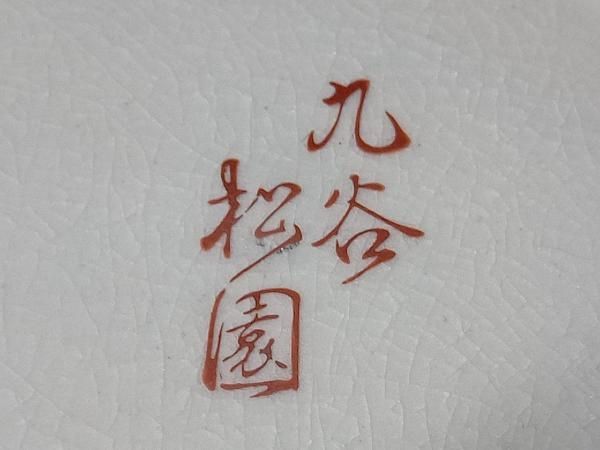 九谷
松園